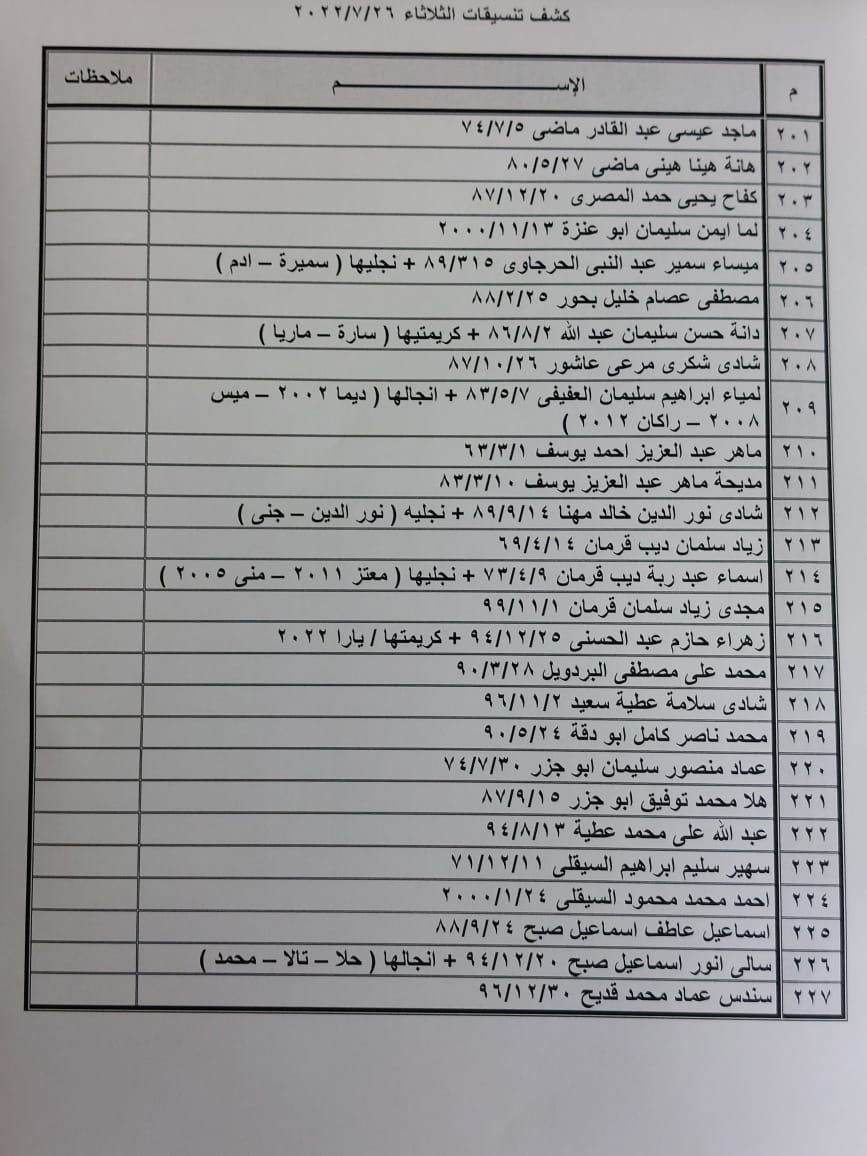 كشف تنسيقات الثلاثاء ٢٠٢٢/٧/٢٦
م الإســـــــــــم ملاحظات
٢٠١ ماجد عيسى عبد القادر ماضى ٧٤/٧/٥
٢٠٢ هانة هينا هينى ماضى ٨٠/٥/٢٧
٢٠٣ كفاح يحيى حمد المصرى ٨٧/١٢/٢٠
٢٠٤ لما ايمن سليمان ابو عنزة ٢٠٠٠/١١/١٣
٢٠٥ ميساء سمير عبد النبى الحرجاوى ٨٩/٣١٥ + نجليها ( سميرة – ادم )
٢٠٦ مصطفى عصام خليل بحور ٨٨/٢/٢٥
٢٠٧ دانة حسن سليمان عبد الله ٨٦/٨/٢ + كريمتيها ( سارة – ماريا )
٢٠٨ شادى شكرى مرعى عاشور ٨٧/١٠/٢٦
٢٠٩ لمياء ابراهيم سليمان العفيفى ٨٣/٥/٧ + انجالها ( ديما ٢٠٠٢ – ميس
٢٠٠٨ – راكان ٢٠١٢ )
٢١٠ ماهر عبد العزيز احمد يوسف ٦٣/٣/١
٢١١ مديحة ماهر عبد العزيز يوسف ٨٣/٣/١٠
٢١٢ شادى نور الدين خالد مهنا ٨٩/٩/١٤ + نجليه ( نور الدين – جنى )
٢١٣ زياد سلمان ديب قرمان ٦٩/٤/١٤
٢١٤ اسماء عبد ربة ديب قرمان ٧٣/٤/٩ + نجليها ( معتز ٢٠١١ – منى ٢٠٠٥ )
٢١٥ مجدى زياد سلمان قرمان ٩٩/١١/١
٢١٦ زهراء حازم عبد الحسنى ٩٤/١٢/٢٥ + كريمتها / يارا ٢٠٢٢
٢١٧ محمد على مصطفى البردويل ٩٠/٣/٢٨
٢١٨ شادى سلامة عطية سعيد ٩٦/١١/٢
٢١٩ محمد ناصر كامل ابو دقة ٩٠/٥/٢٤
٢٢٠ عماد منصور سليمان ابو جزر ٧٤/٧/٣٠
٢٢١ هلا محمد توفيق ابو جزر ٨٧/٩/١٥
٢٢٢ عبد الله على محمد عطية ٩٤/٨/١٣
٢٢٣ سهير سليم ابراهيم السيقلى ٧١/١٢/١١
٢٢٤ احمد محمد محمود السيقلى ٢٠٠٠/١/٢٤
٢٢٥ اسماعيل عاطف اسماعيل صبح ٨٨/٩/٢٤
٢٢٦ سالى انور اسماعيل صبح ٩٤/١٢/٢٠ + انجالها ( حلا – تالا – محمد )
٢٢٧ سندس عماد محمد قديح ٩٦/١٢/٣٠